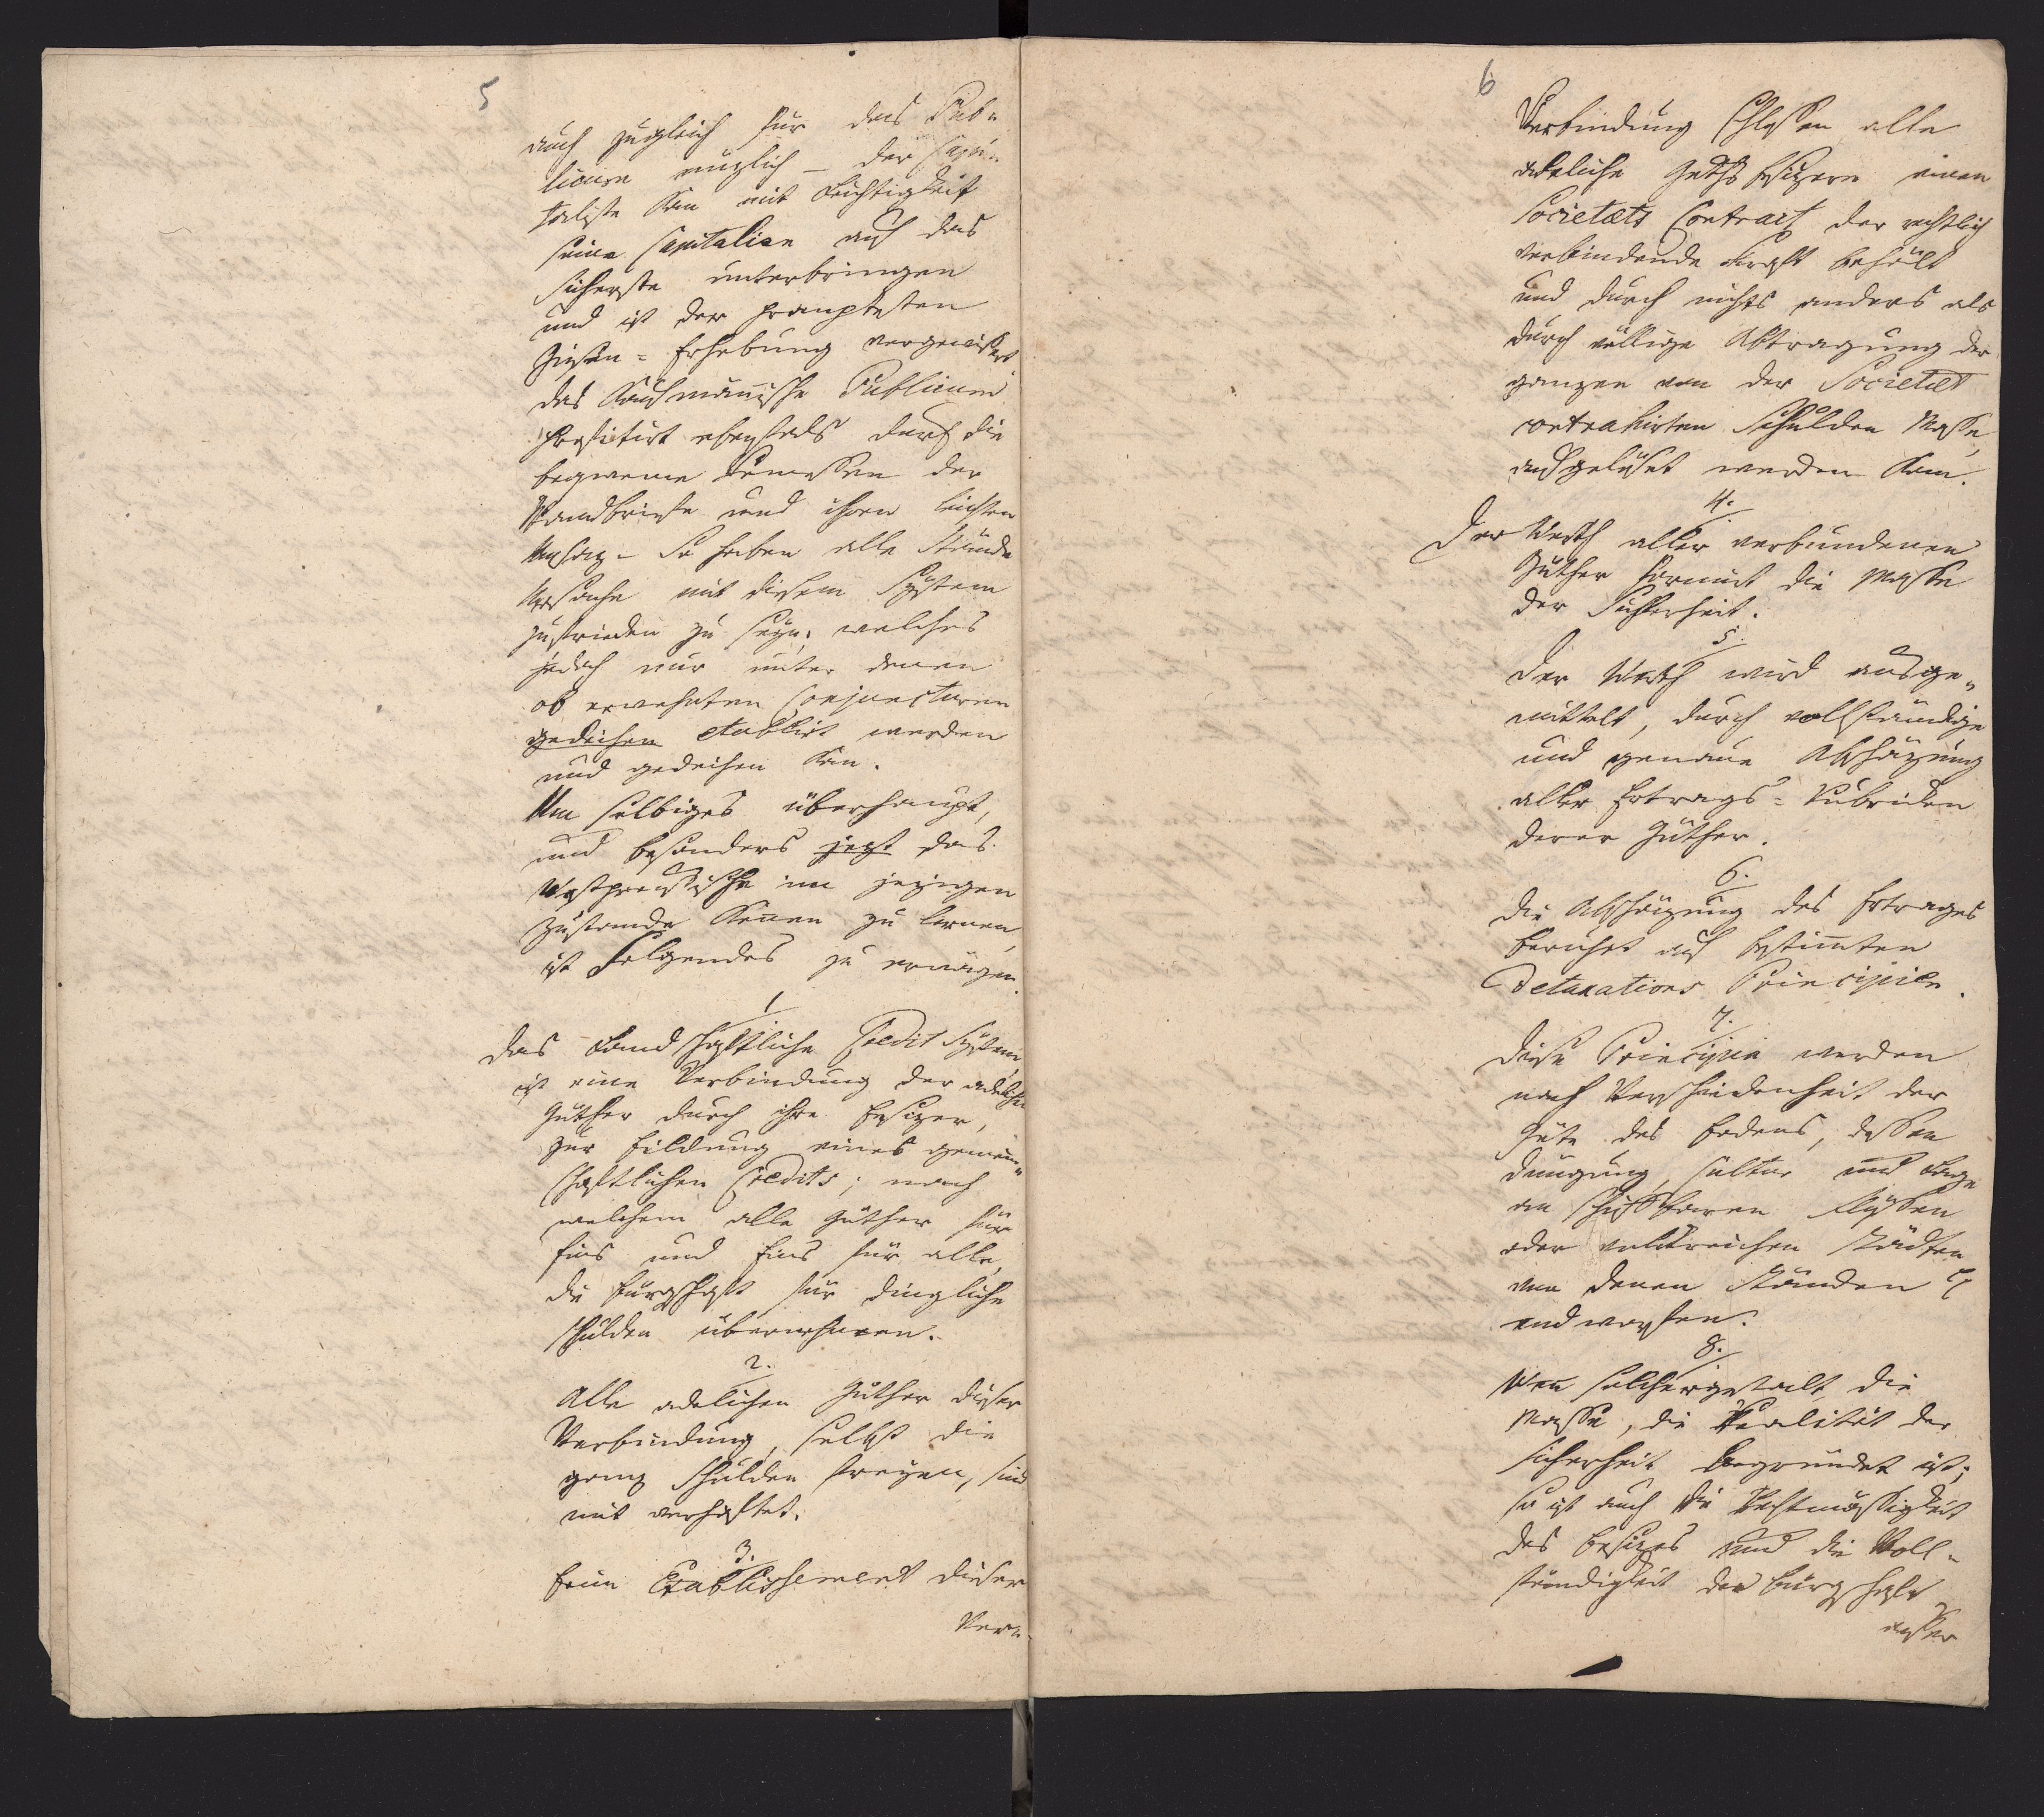 5
auch zugleich für das Pub-
licum nuzlich – der Capi-
taliste kan mit Leichtigkeit
seine Capitalien auf das
sicherste unterbringen
und ist der promptesten
Zinsen-Erhebung vergewißert
das Kaufmännische Publicum
profitirt ebenfals durch die
bequeme Rimessen der
Pfandbriefe und ihren leichten
Umsaz – So haben alle Stände
Ursache mit diesem System
zufrieden zu seyn, welches
jedoch nur unter denen
ob erwehnten Conjuncturen
gedeihen etablirt werden
und gedeihen kan.
Um selbiges überhaupt,
und besonders jezt das
Westpreußische im jezigen
Zustande kennen zu lernen,
ist Folgendes zu erwägen.
1.
Das Landschaftliche Credit System
ist eine Verbindung der adelichen
Güther durch ihre Besizer,
zur Bildung eines gemein-
schaftlichen Credits; nach
welchem alle Güther für
Eins und Eins für alle,
die Bürgschaft für dingliche
Schulden übernehmen.
2.
Alle adelichen Güther dieser
Verbindung, selbst die
ganz Schulden freyen, sind
mit verhaftet.
3.
Beim Etablissement dieser
Ver-
6
Verbindung schloßen alle
adeliche Guths besizern einen
Societæts Contract der rechtlich
verbindende Kraft behält
und durch nichts anders als
durch völlige Abtragung der
ganzen von der Societæt
contrahirten Schulden Masse,
aufgelöset werden kan.
4.
Der Werth aller verbundenen
Güther formirt die Masse
der Sicherheit.
5.
Der Werth wird ausge-
mittelt, durch vollständige
und genaue Abschäzung
aller Ertrags-Rubriken
derer Güther.
6.
Die Abschäzung des Ertrages
beruhet auf bestimten
Detaxations Principien.
7.
Diese Principia werden
nach Verschiedenheit der
Güte des Bodens, dessen
Düngung, Cultur und Lage
an schifbaren Flüßen
oder volkreichen Städten
von denen Ständen
entworfen.
8.
Wen solchergestalt die
Masse, die Realität der
Sicherheit begründet ist;
so ist auch die Rechtmäßigkeit
des Besizes und die Voll-
ständigkeit der Bürgschaft